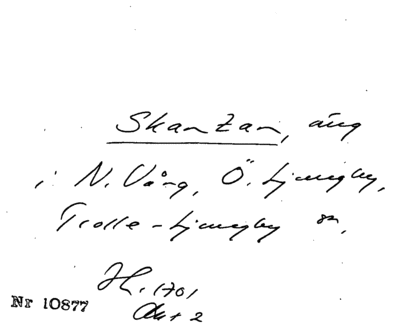 Skanzan, äng
i N. Vång, Ö. Ljungby,
Trolle-Ljungby sn,
H. 1701
Akt 2
Nr 10877